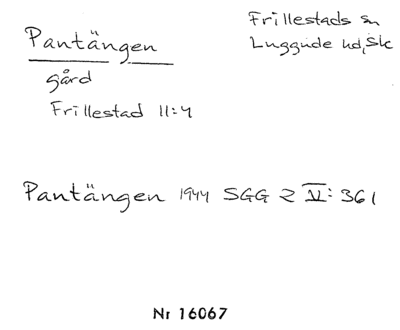 Pantängen
gård
Frillestad 11:4
Frillestads sn
Luggude hd, Sk
Pantängen 1944 SGG 2 IV: 361
Nr 16067